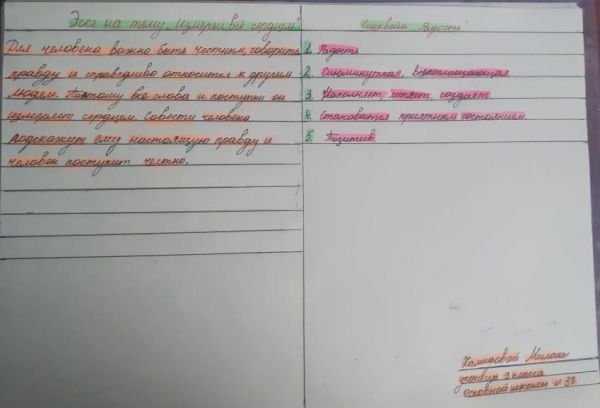 Эссе на тему „Измеряй всё сердцем"
Для человека важно быть честным, говорить
правду и справедливо относится к другим
людям. Поэтому все слова и поступки он
измеряет сердцем. Совести человека
подскажут ему настоящую правду и
человек поступит честно.
Синквейн „Радость"
1. Радость
2. Сиюминутная, всепоглощающая
3. Наполняет, сияет, создаёт
4. Становится приятным состоянием.
5. Позитив.
Хамидовой Милана
ученицы 9 класса
основной школы № 37